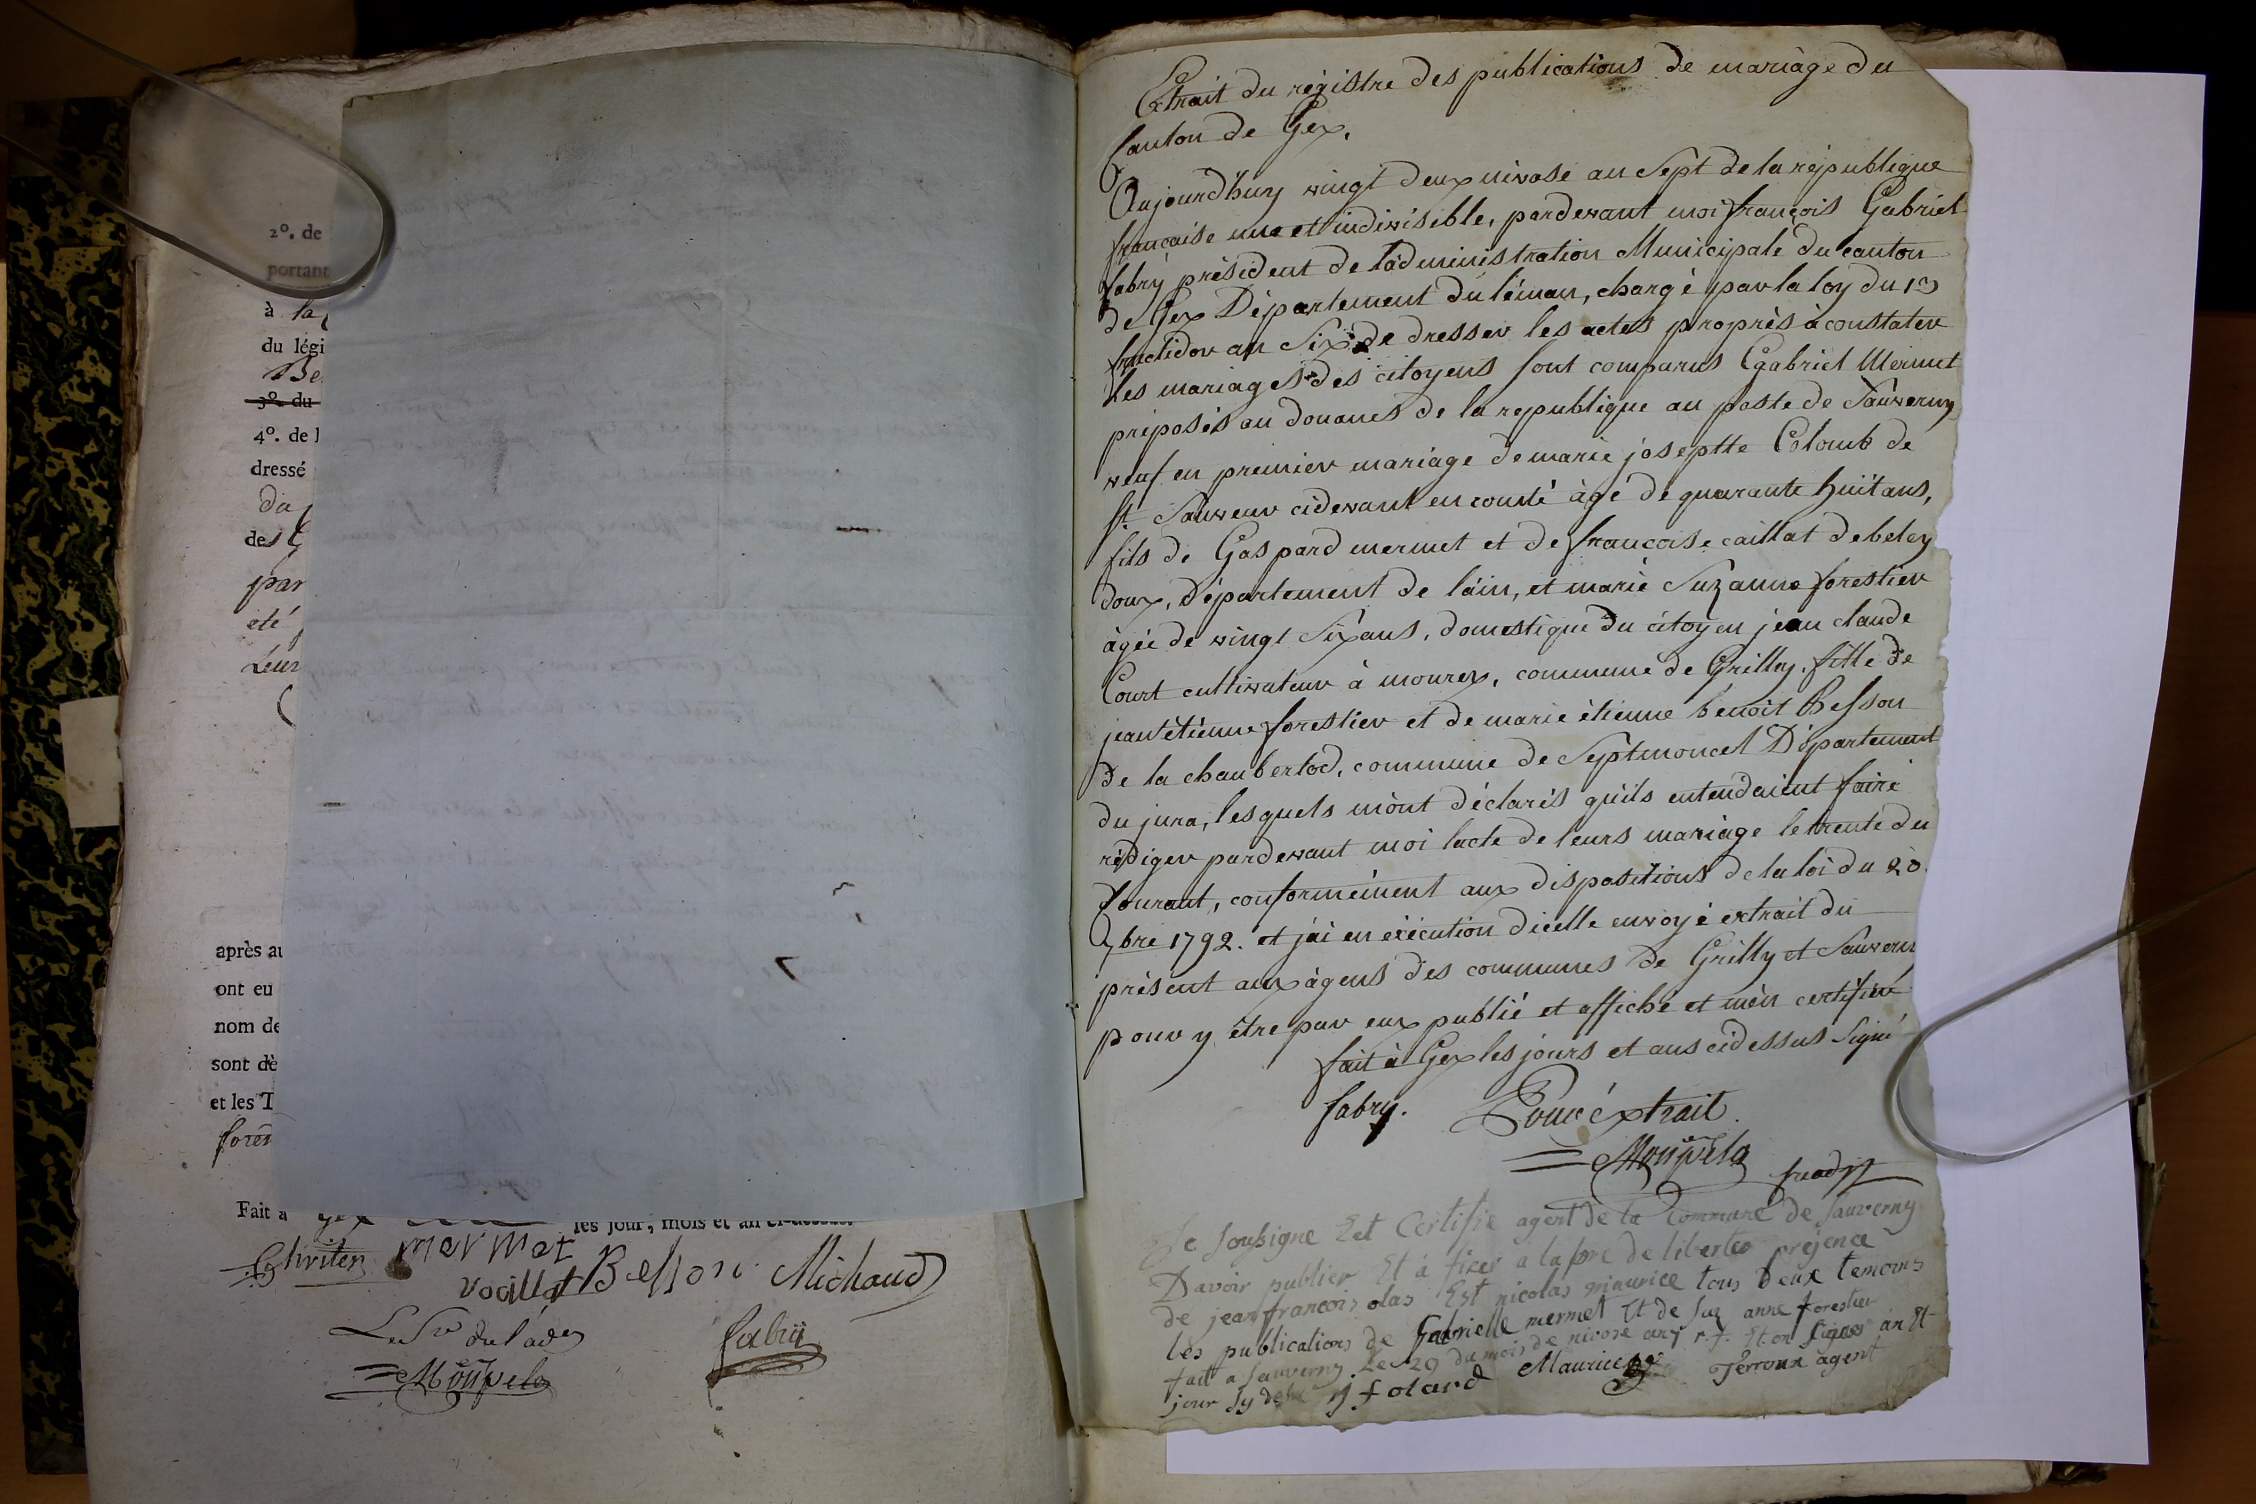 2º. de
portant
à la
du légi
Be
3º du
4º. de l
dressé
da
des
par
été
Leur
après au
ont eu
nom de
sont dè
et les T
forés
Fait a gex les jour, mois et an ci-dessus.
Chriten mermet
voaillat Besson Michaud
Le Sre de l'adon
Mouvela fabry
Extrait du régistre des publications de mariage du
Canton de Gex.
Aujourdhuy vingt deux nivose an Sept de la république
française une et indivisible, pardevant moi françois Gabriel
fabry président de l'administration Municipale du canton
de Gex Département du léman, chargé par la loy du 13
fructidor an Six de dresser les actes propres à constater
les mariages des citoyens sont comparus Gabriel Mermet
préposés au douanes de la republique au poste de Sauverny
veuf en premier mariage de marie joseptte Colomb de
St Sauveur cidevant en comté àgé de quarante huit ans,
fils de Gaspard mermet et de francoise caillat de beley
doux, Département de l'ain, et marie Suzanne forestier
àgée de vingt Six ans, domestique du citoyen jean claude
Court cultivateur à mourex, commune de Grilly, fille de
jean étienne forestier et de marie étienne benoit Besson
de la chaubertod, commune de Septmoncel Département
du jura, lesquels m'ont déclarés qu'ils entendaient faire
rédiger pardevant moi lacte de leurs mariage le trente du
Courant, conformément aux dispositions de la loi du 20
7bre 1792. et j'ai en exécution d'icelle envoyé extrait du
présent aux àgens des communes de Grilly et Sauverny
pour y être par eux publié et affiché et m'en certifier
fait à Gex les jours et ans cidessus Signé
fabry. Pour éxtrait.
Mouvela
Je Sousigne Zet Certifie agent de la Commune de Sauverny
Davoir publier Et à fizer a la bre de liberter préjence
de jean francois olas Est nicolas maurice tous deux temoins
les publications de Gabrielle mermet Et de Suz anne forestier
fait a Sauverny Le 29 du mois de nivose an 7 r. f. Et on Signes an Et
jour Sy desu j f olard Maurice Perroux agent